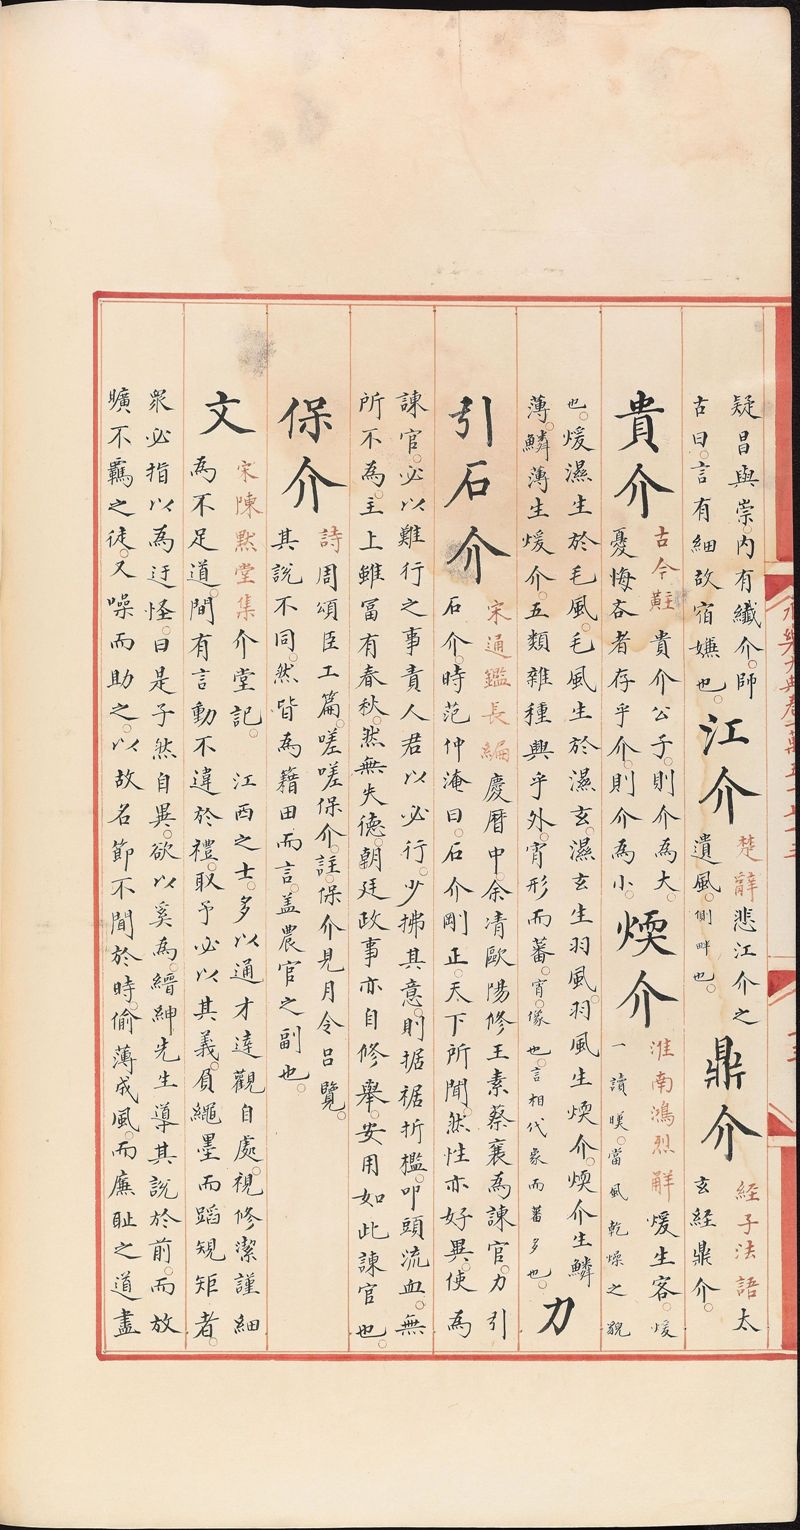 疑昌與崇。内有纖介。師
古曰。言有細故宿嫌也。
江介
楚辭悲江介之
遺風。側畔也。
鼎介
經子法語太
玄經鼎介。
貴介
古今註 貴介公子。則介為大。
憂悔吝者存乎介。則介為小。
煗介
淮南鴻烈解 煖生容。煖
一讀暵。當風乾燥之貌
也。煖濕生於毛風。毛風生於濕玄。濕玄生羽風。羽風生煗介。煗介生鱗
薄。鱗薄生煖介。五類雜種興乎外。宵形而蕃。宵。像也。言相代象而蕃多也。
力
引石介
宋通鑑長編 慶曆中。余凊歐陽修王素蔡襄為諫官。力引
石介。時范仲淹曰。石介剛正。天下所聞。然性亦好異。使為
諫官。必以難行之事責人君以必行。少拂其意。則据裾折檻。叩頭流血。無
所不為。主上雖冨有春秋。然無失德。朝廷政事亦自修舉。安用如此諫官也。
保介
詩周頌臣工篇。嗟嗟保介。註。保介見月令呂覽。
其說不同。然皆為籍田而言。盖農官之副也。
文
宋陳黙堂集 介堂記。江西之士。多以通才達觀自處。視修潔謹細
為不足道。間有言動不違於禮。取予必以其義。負繩墨而蹈䂓矩者。
衆必指以為迂怪。曰是孑然自異。欲以奚為。縉紳先生導其說於前。而放
曠不羈之徒。又噪而助之。以故名節不聞於時。偷薄成風。而廉耻之道盡
永樂大典卷一萬五千七十三